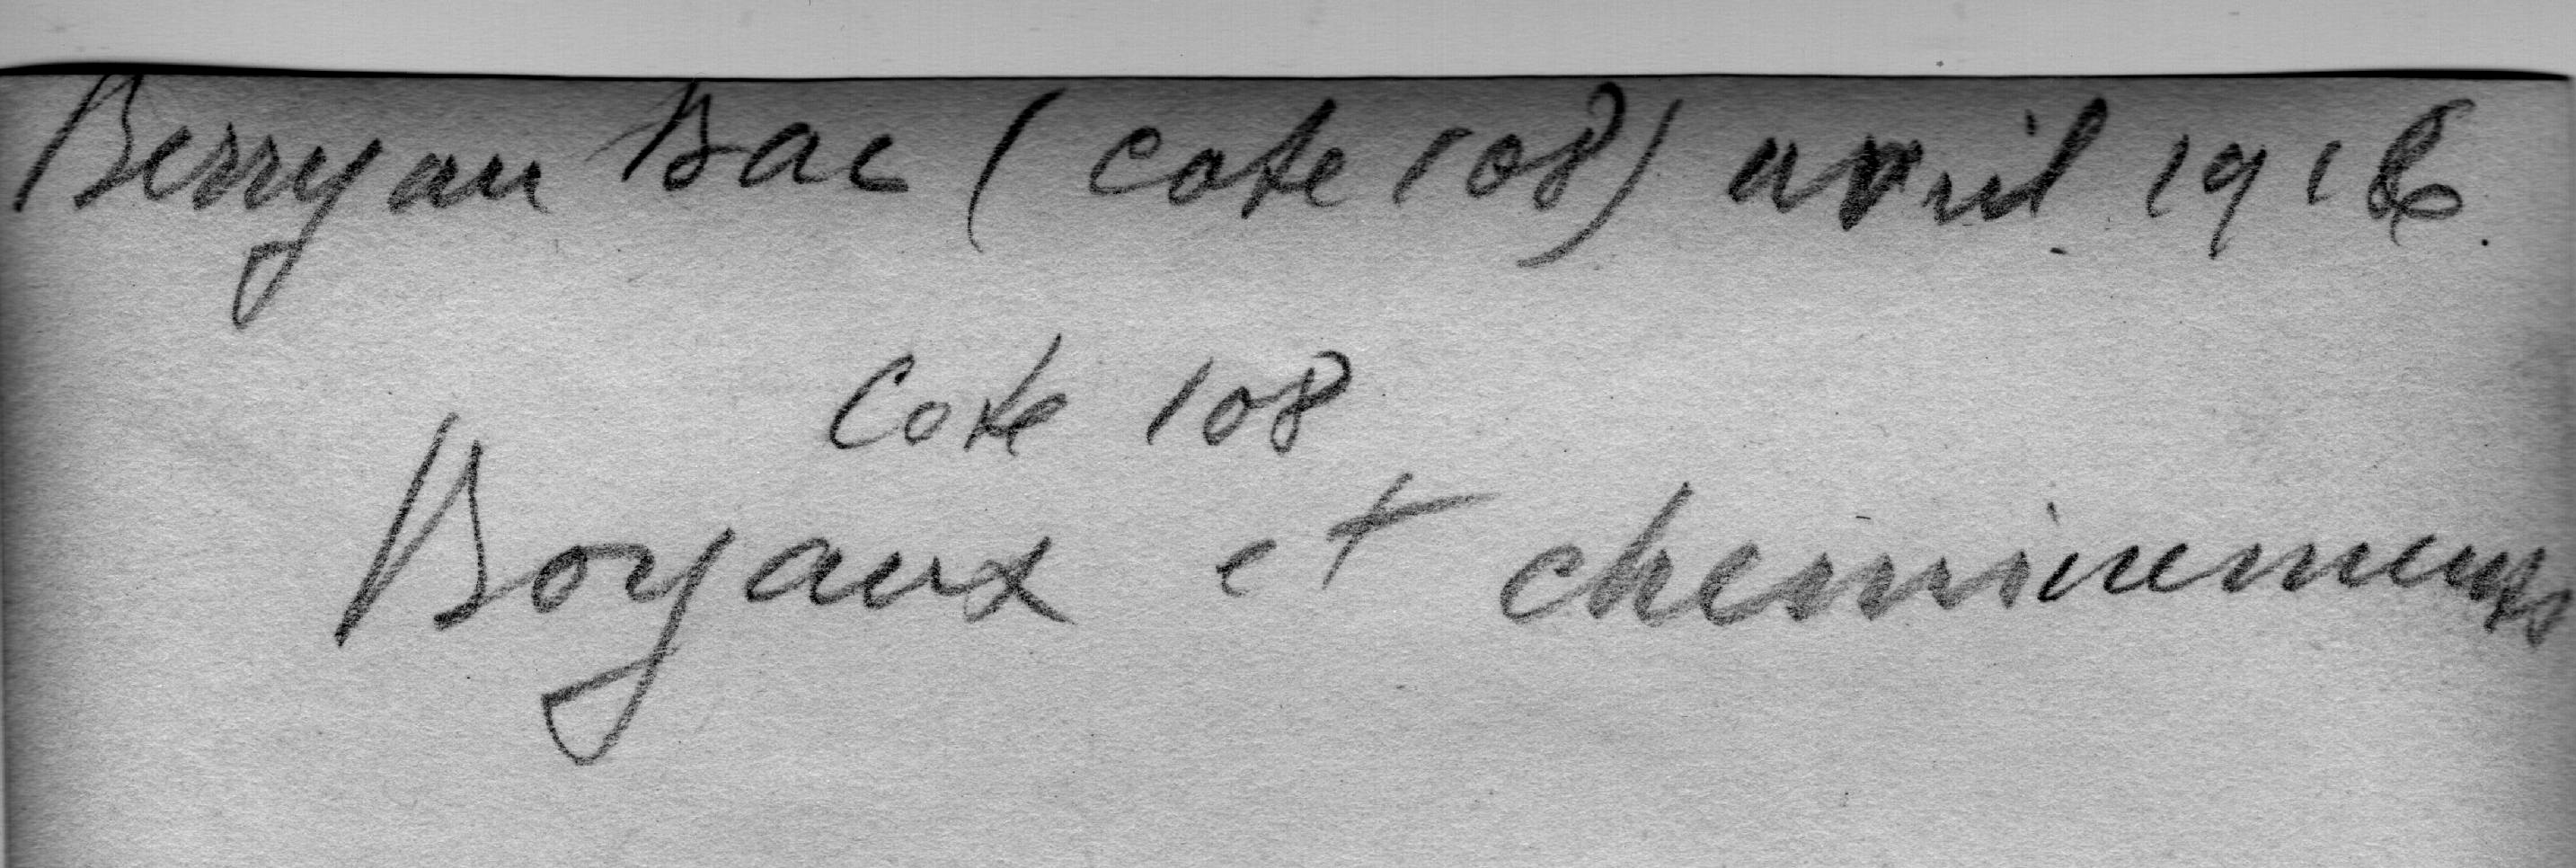 Berry au Bac (cote 108) avril 1916.
Cote 108
Boyaux et cheminements